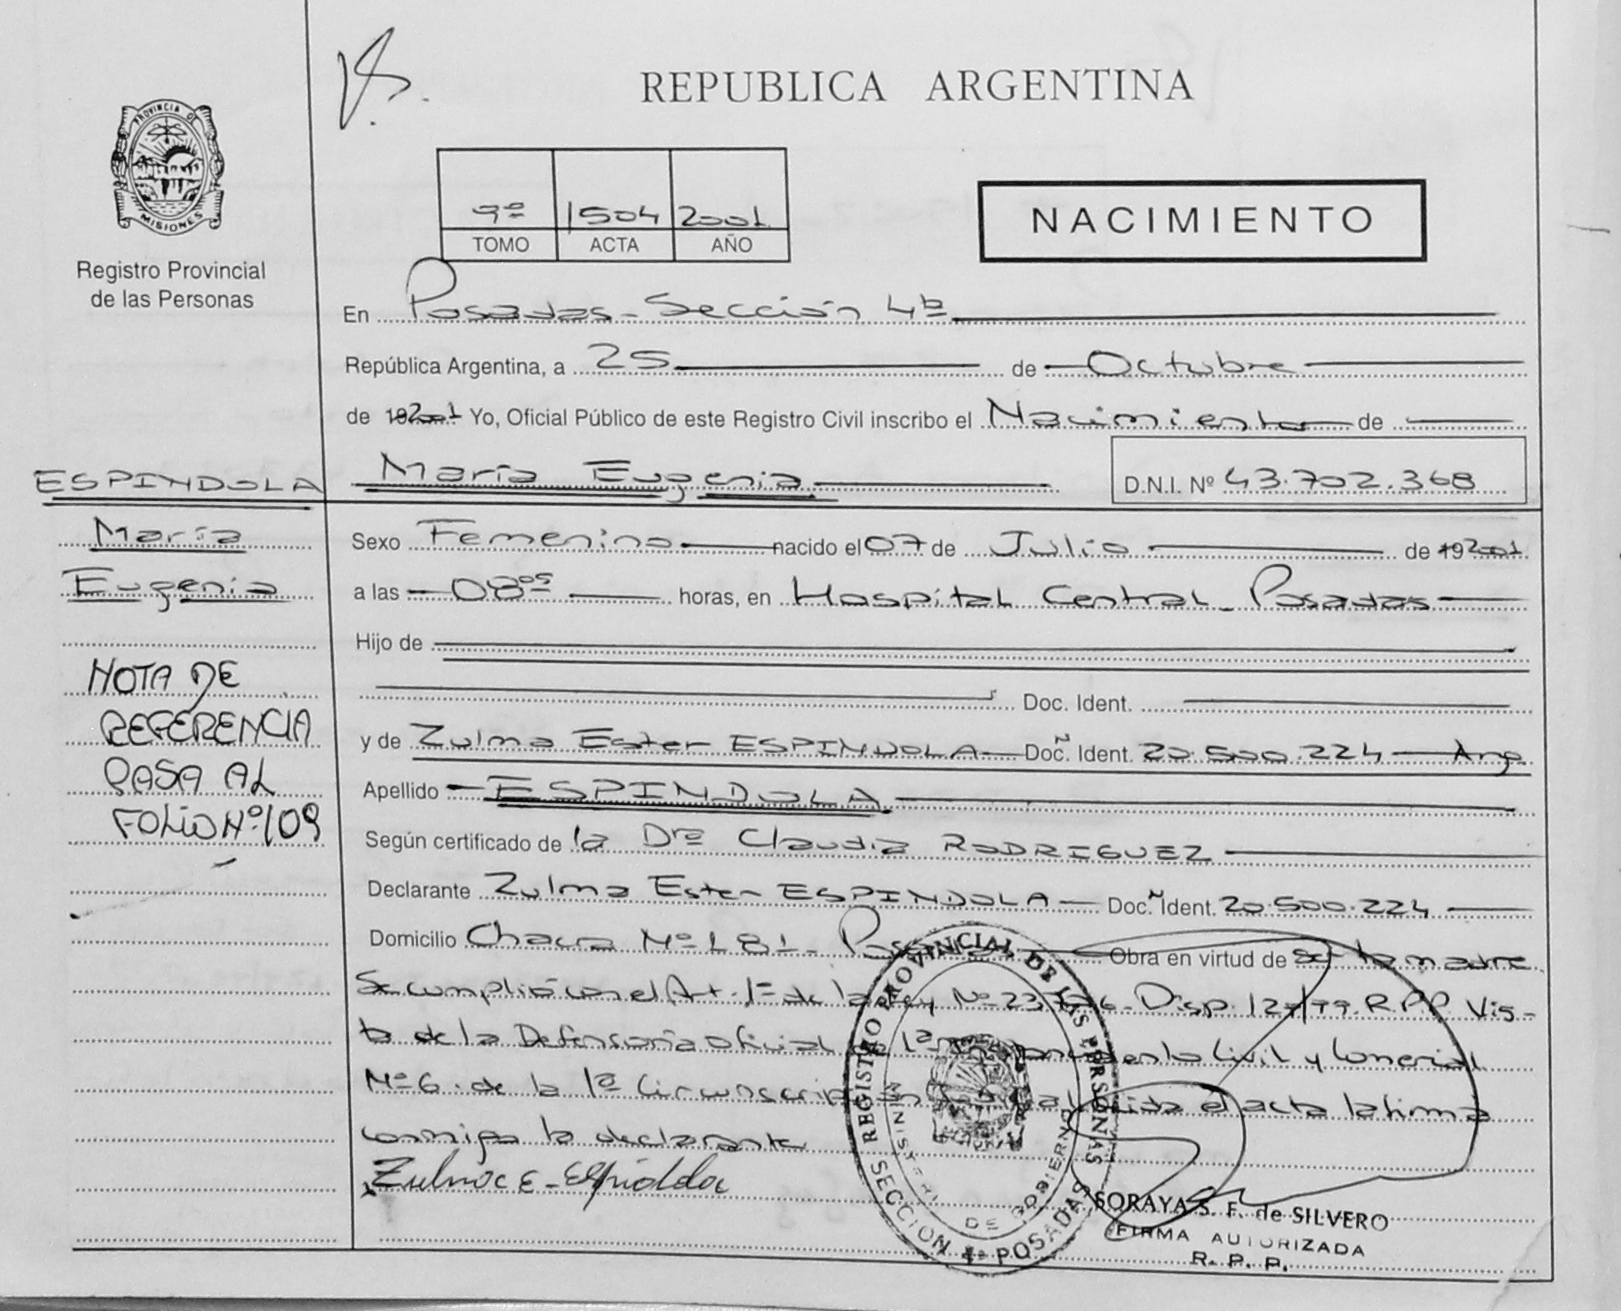 REPUBLICA ARGENTINA
PROVINCIA DE MISIONES
Registro Provincial
de las Personas
9º 1504 2001
TOMO ACTA AÑO
NACIMIENTO
En Posadas - Sección 4ª
República Argentina, a 25 de Octubre
de 192001 Yo, Oficial Público de este Registro Civil inscribo el Nacimiento de
María Eugenia D.N.I. Nº 43.702.368
ESPINDOLA
María
Eugenia
NOTA DE
REFERENCIA
PASA AL
FOLIO Nº 109
Sexo Femenino nacido el 07 de Julio de 192001
a las 08 05 horas, en Hospital Central - Posadas
Hijo de
Doc. Ident.
y de Zulma Ester ESPINDOLA Doc. Ident. 20.500.224 Arg.
Apellido ESPINDOLA
Según certificado de la Dra Claudia RODRIGUEZ
Declarante Zulma Ester ESPINDOLA Doc. Ident. 20.500.224
Domicilio Chacra Nº 181 - Obra en virtud de ser la madre
Se cumplió con el Art. 1º de la Ley Nº 23. - Disp. 12/99. R.P.P. Vis-
ta de la Defensoría oficial de 1ª en lo Civil y Comercial
Nº 6 de la 1ª Circunscripción el acta la firma
conmigo la declarante
Zulma E. Espíndola
REGISTRO PROVINCIAL DE LAS PERSONAS
MINISTERIO DE GOBIERNO
SECCION 4ª POSADAS
SORAYA S. F. de SILVERO
FIRMA AUTORIZADA
R. P. P.